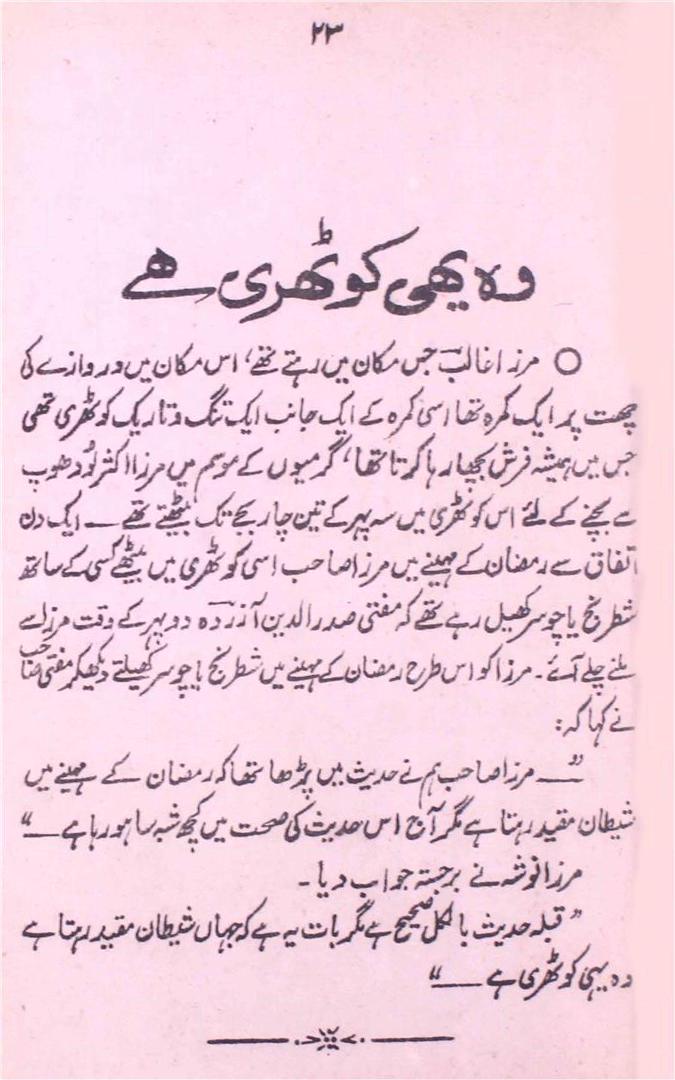 ۲۳
وہ یہی کوٹھری ھے
○ مرزا غالبؔ جس مکان میں رہتے تھے، اس مکان میں دروازے کی
چھت پر ایک کمرہ تھا اسی کمرہ کے ایک جانب ایک تنگ و تاریک کوٹھری تھی
جس میں ہمیشہ فرش بچھا رہا کرتا تھا، گرمیوں کے موسم میں مرزا اکثر لُو دھوپ
سے بچنے کے لئے اس کوٹھری میں سہ پہر کے تین چار بجے تک بیٹھتے تھے — ایک دن
اتفاق سے رمضان کے مہینے میں مرزا صاحب اسی کوٹھری میں بیٹھے کسی کے ساتھ
شطرنج یا چوسر کھیل رہے تھے کہ مفتی صدرالدین آزردہؔ دوپہر کے وقت مرزا سے
ملنے چلے آئے۔ مرزا کو اس طرح رمضان کے مہینے میں شطرنج یا چوسر کھیلتے دیکھکر مفتی صاحب
نے کہا کہ:
"— مرزا صاحب ہم نے حدیث میں پڑھا تھا کہ رمضان کے مہینے میں
شیطان مقید رہتا ہے مگر آج اس حدیث کی صحت میں کچھ شبہ سا ہو رہا ہے —"
مرزا نوشہ نے برجستہ جواب دیا۔
"قبلہ حدیث بالکل صحیح ہے مگر بات یہ ہے کہ جہاں شیطان مقید رہتا ہے
وہ یہی کوٹھری ہے —"